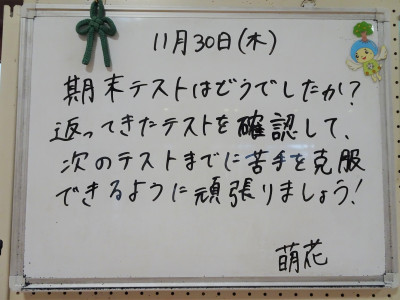 11月30日(木)
期末テストはどうでしたか?
返ってきたテストを確認して、
次のテストまでに苦手を克服
できるように頑張りましょう!
萌花